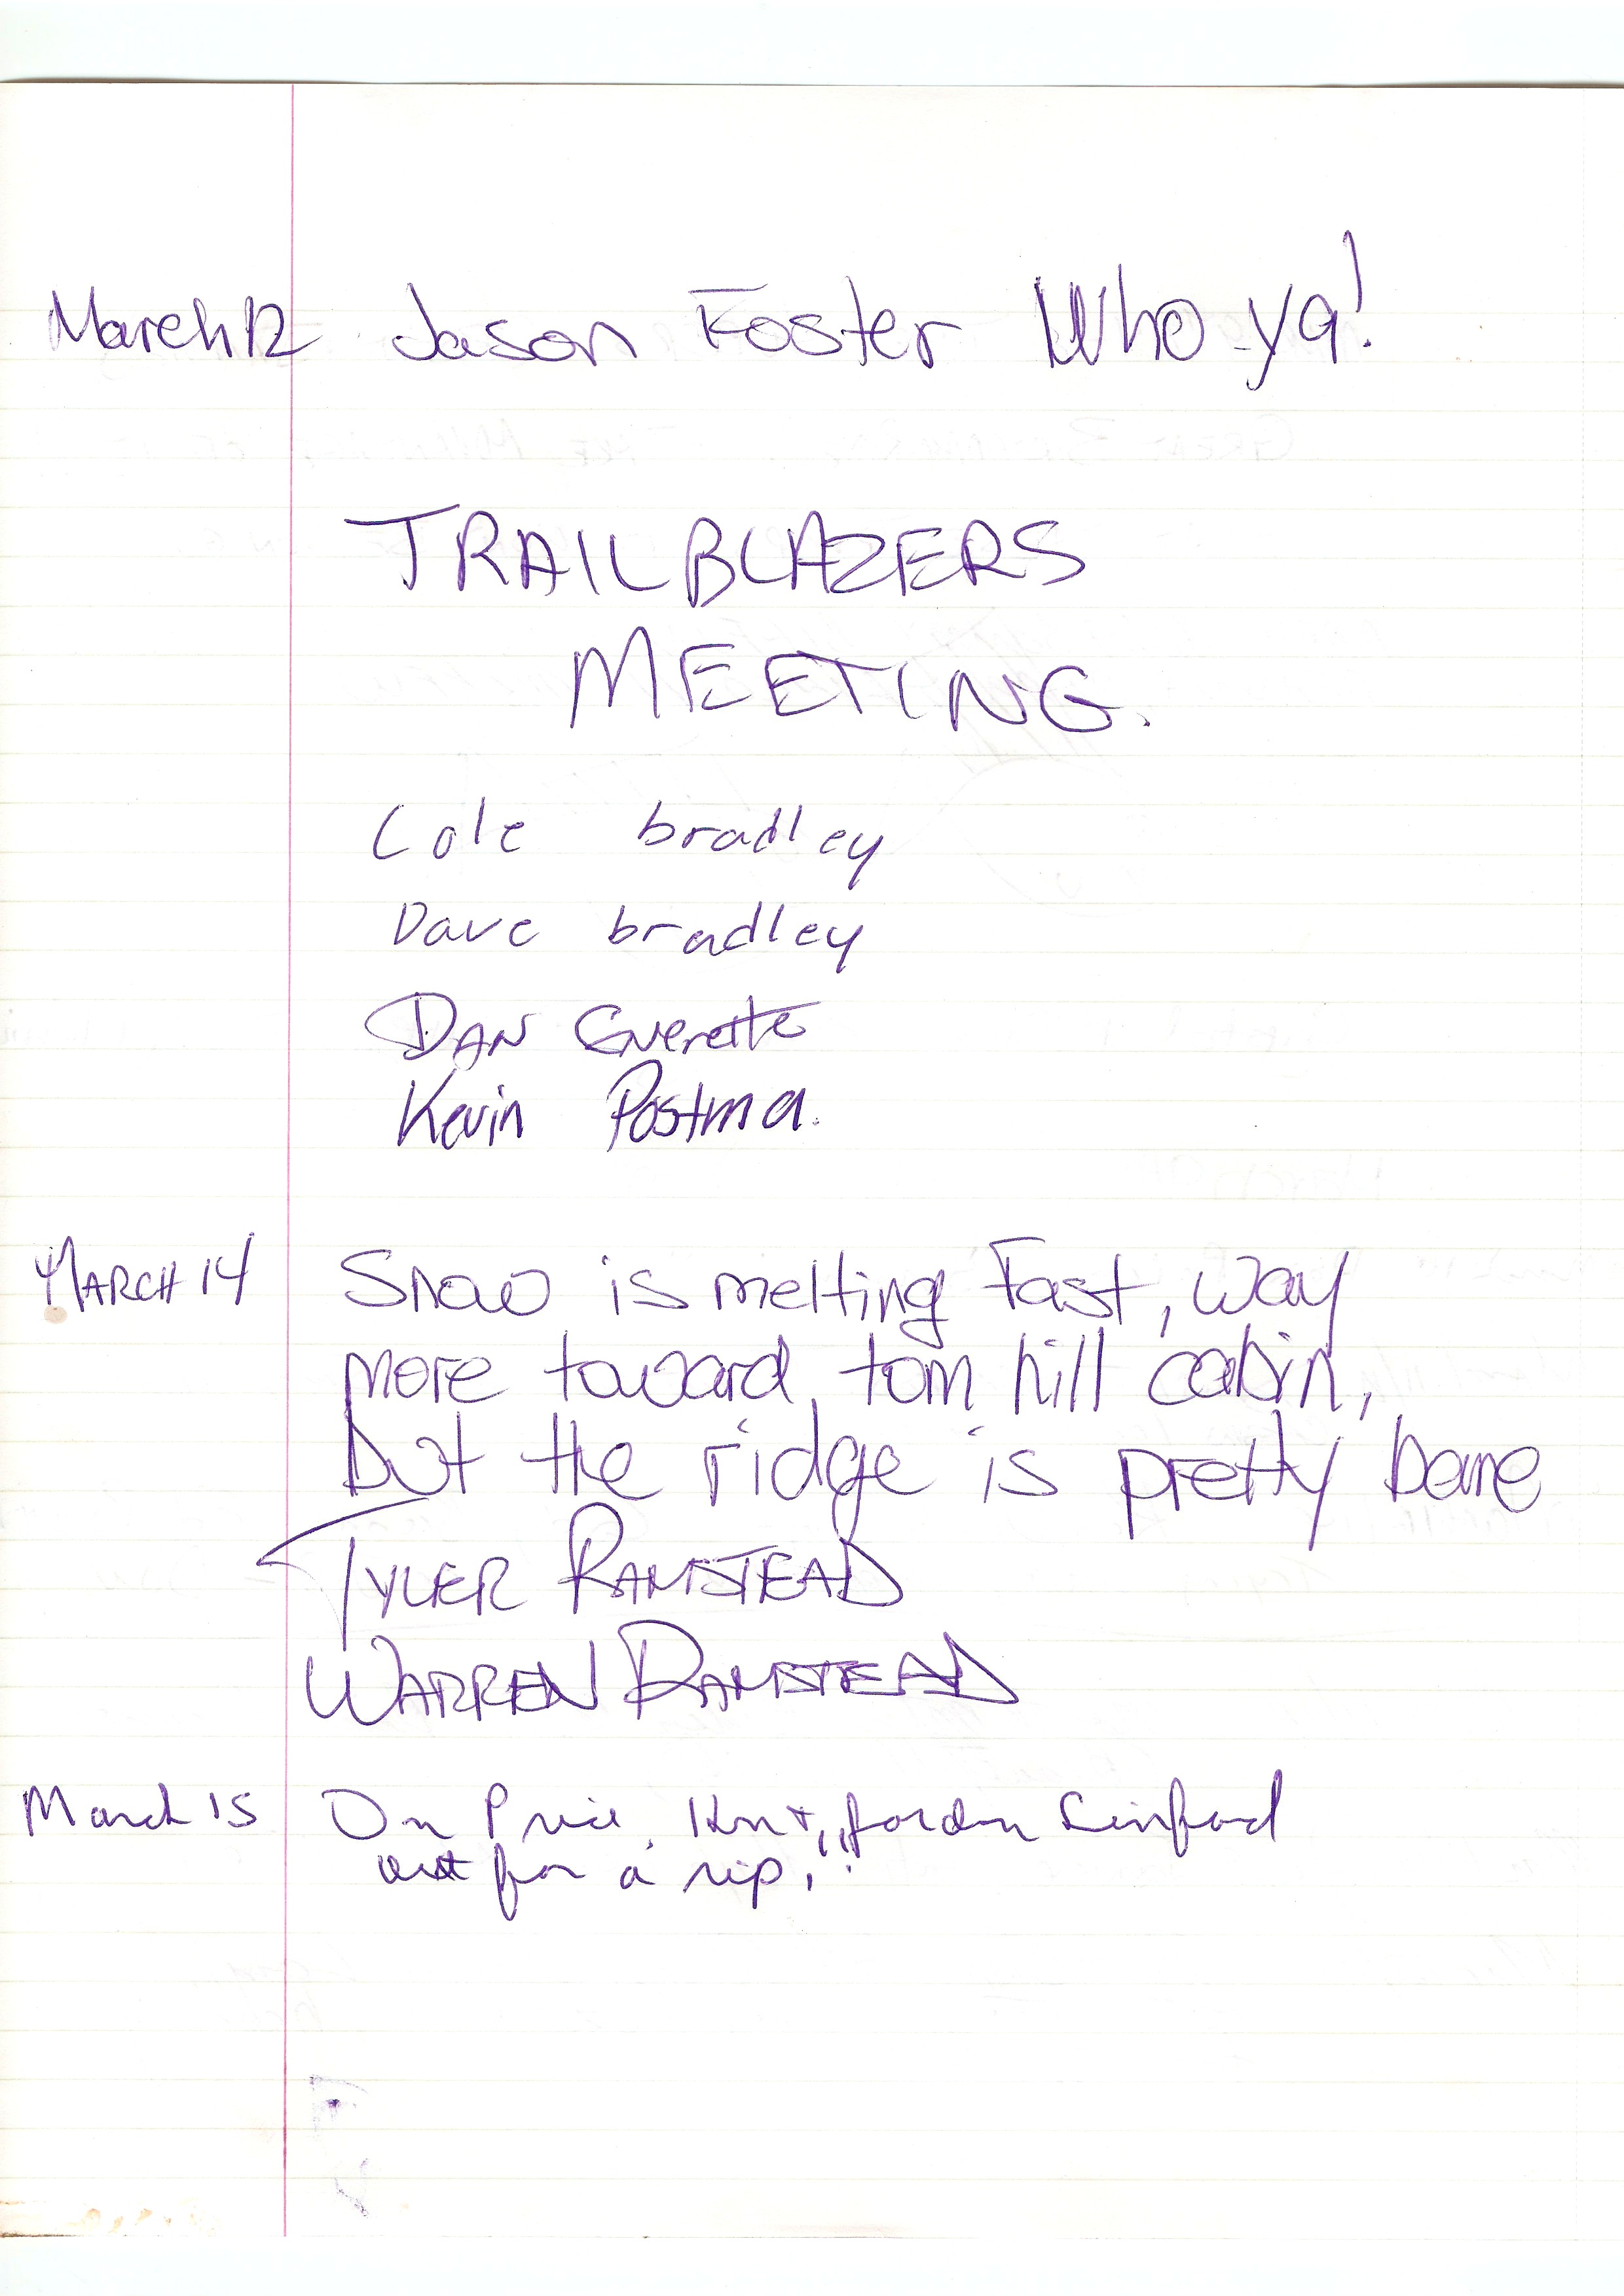 March 12 Jason Foster Who ya!
TRAILBLAZERS
MEETING.
Cole bradley
Dave bradley
DAN Everette
Kevin Postma.
MARCH 14 Snow is melting Fast, way
more toward tom hill cabin,
but the ridge is pretty bare
TYLER RAMSTEAD
WARREN RAMSTEAD
March 15 On
out for a rip,!!